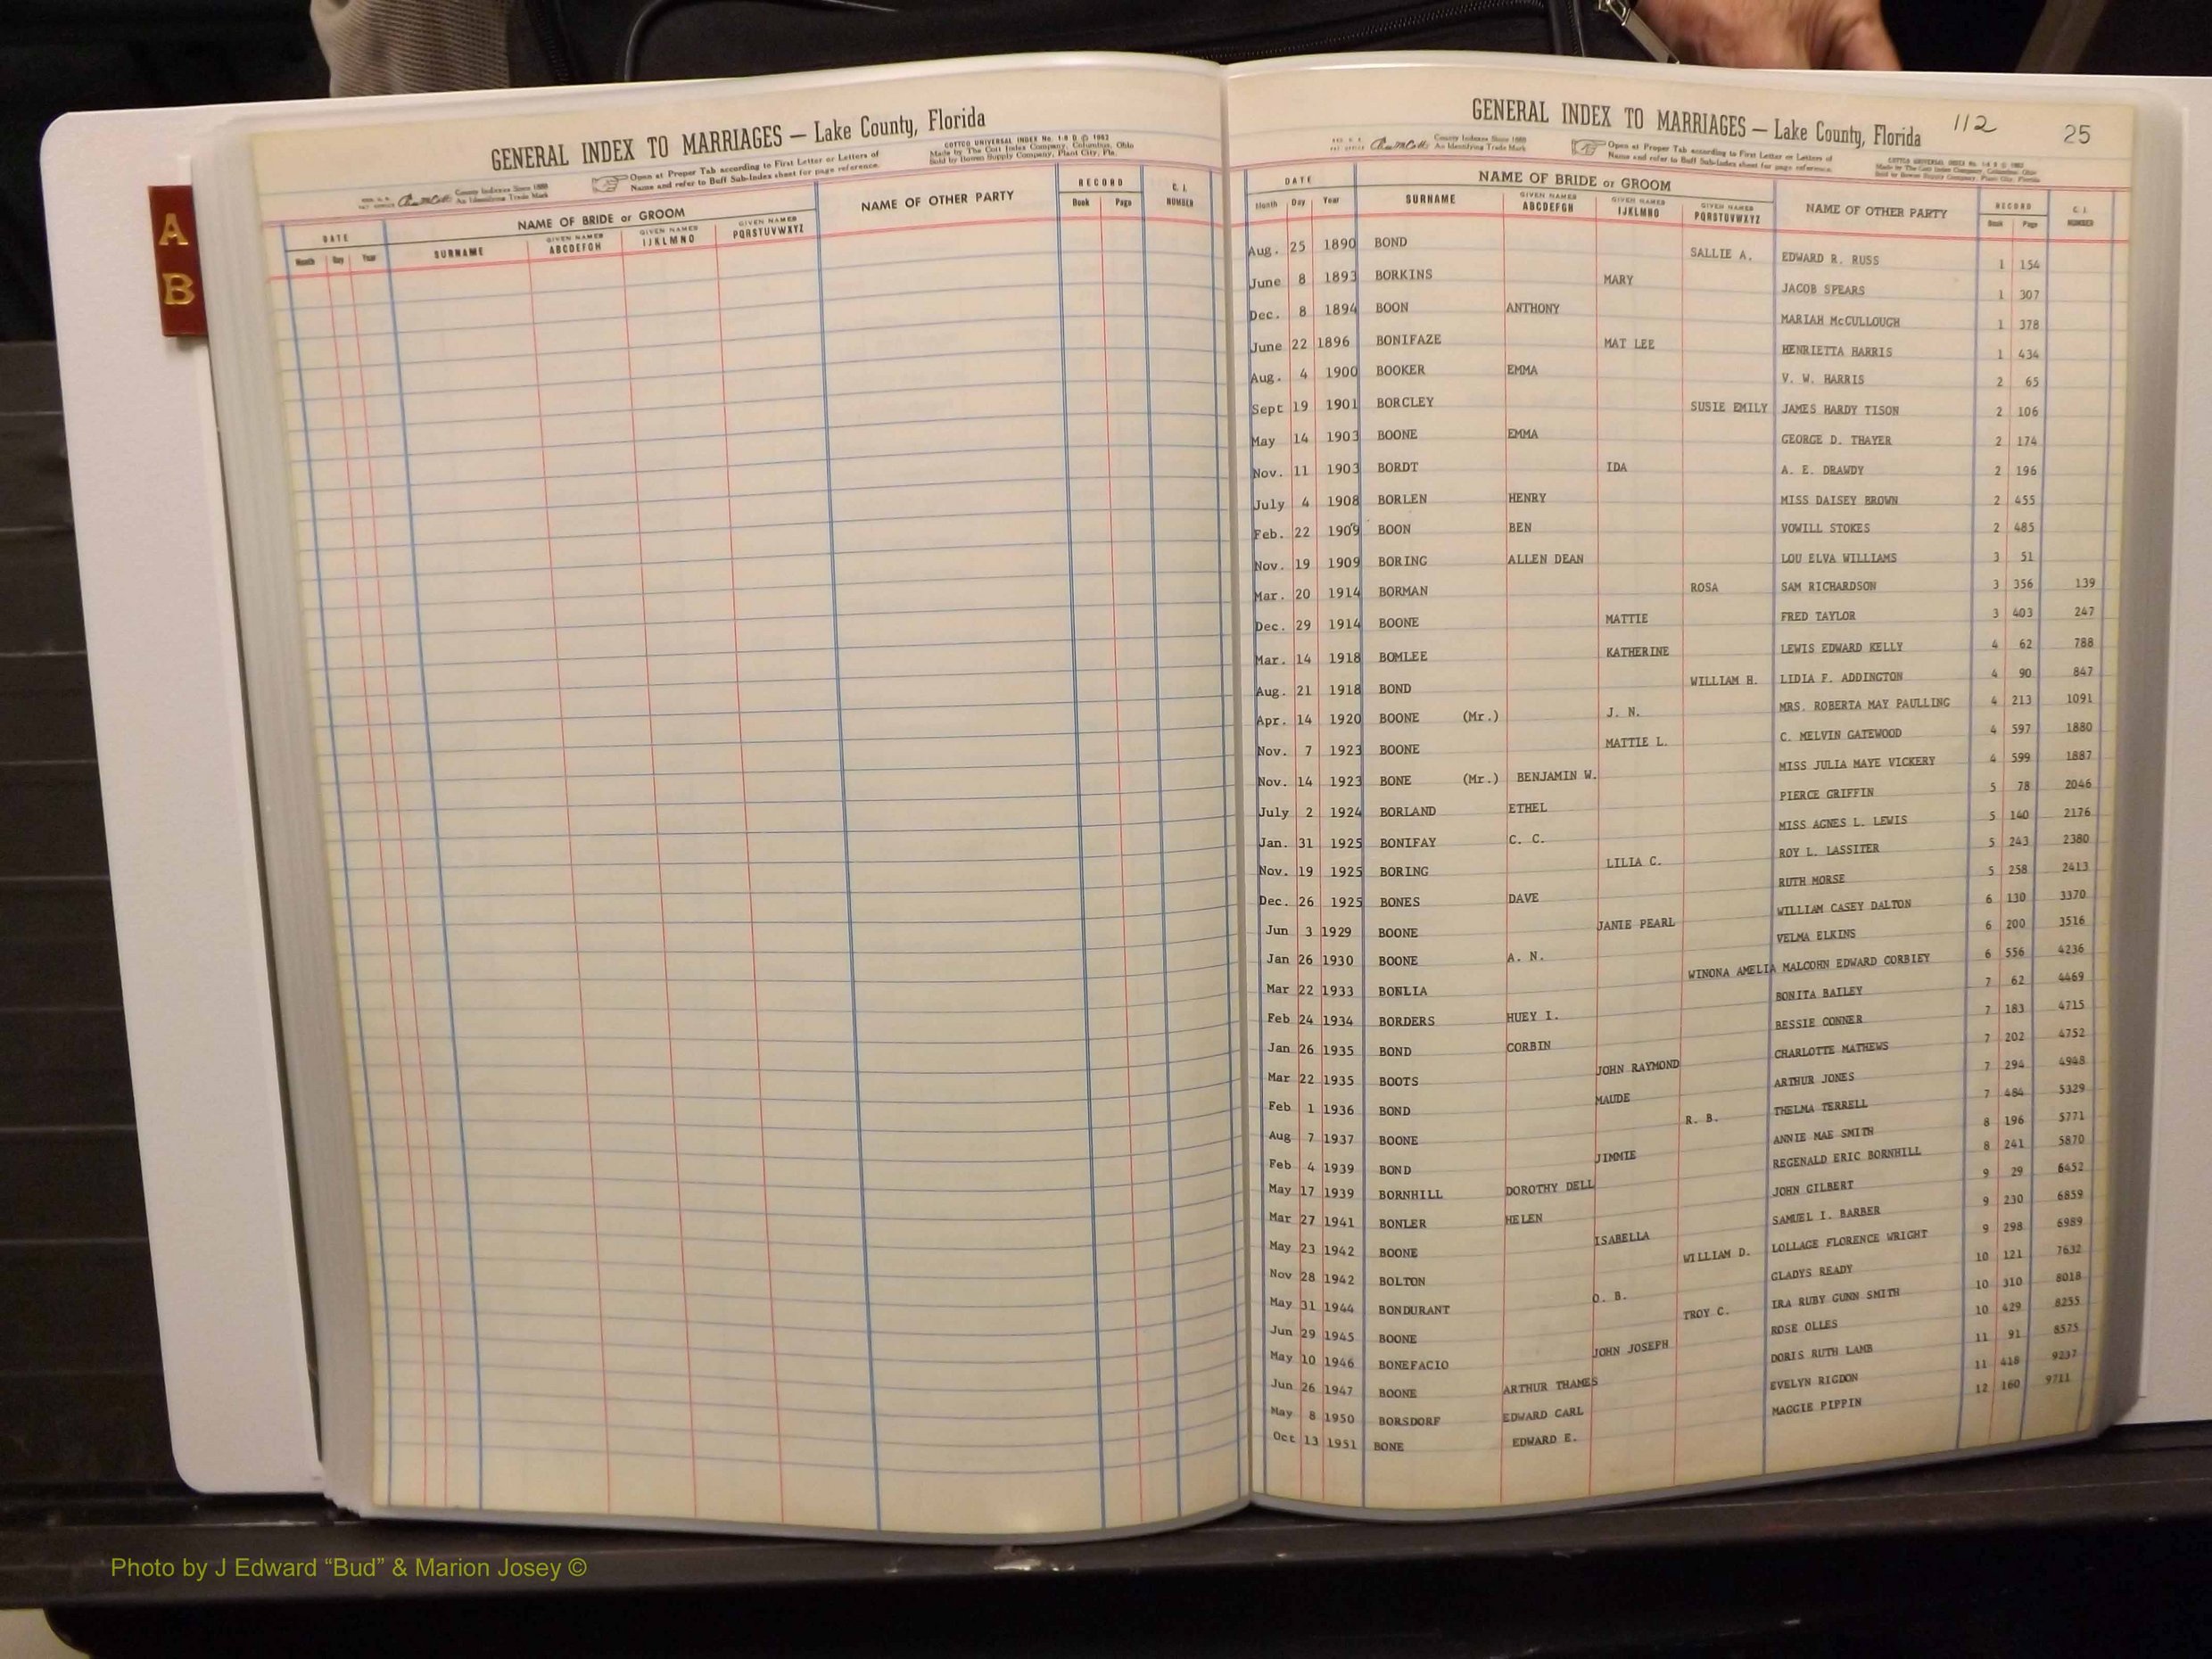 A
B
GENERAL INDEX TO MARRIAGES — Lake County, Florida
County Indexes Since 1888
An Identifying Trade Mark
Open at Proper Tab according to First Letter or Letters of
Name and refer to Buff Sub-Index sheet for page reference.
COTTCO UNIVERSAL INDEX No. 1-9 D © 1962
Made by The Cott Index Company, Columbus, Ohio
Sold by Bowen Supply Company, Plant City, Fla.
DATE NAME OF BRIDE or GROOM NAME OF OTHER PARTY RECORD C. I. NUMBER
Month Day Year SURNAME GIVEN NAMES ABCDEFGH GIVEN NAMES IJKLMNO GIVEN NAMES PQRSTUVWXYZ Book Page
GENERAL INDEX TO MARRIAGES — Lake County, Florida 112 25
County Indexes Since 1888
An Identifying Trade Mark
Open at Proper Tab according to First Letter or Letters of
Name and refer to Buff Sub-Index sheet for page reference.
DATE NAME OF BRIDE or GROOM NAME OF OTHER PARTY RECORD C. I. NUMBER
Month Day Year SURNAME GIVEN NAMES ABCDEFGH GIVEN NAMES IJKLMNO GIVEN NAMES PQRSTUVWXYZ Book Page
Aug. 25 1890 BOND SALLIE A. EDWARD R. RUSS 1 154
June 8 1893 BORKINS MARY JACOB SPEARS 1 307
Dec. 8 1894 BOON ANTHONY MARIAH McCULLOUGH 1 378
June 22 1896 BONIFAZE MAT LEE HENRIETTA HARRIS 1 434
Aug. 4 1900 BOOKER EMMA V. W. HARRIS 2 65
Sept 19 1901 BORCLEY SUSIE EMILY JAMES HARDY TISON 2 106
May 14 1903 BOONE EMMA GEORGE D. THAYER 2 174
Nov. 11 1903 BORDT IDA A. E. DRAWDY 2 196
July 4 1908 BORLEN HENRY MISS DAISEY BROWN 2 455
Feb. 22 1909 BOON BEN VOWILL STOKES 2 485
Nov. 19 1909 BORING ALLEN DEAN LOU ELVA WILLIAMS 3 51
Mar. 20 1914 BORMAN ROSA SAM RICHARDSON 3 356 139
Dec. 29 1914 BOONE MATTIE FRED TAYLOR 3 403 247
Mar. 14 1918 BOMLEE KATHERINE LEWIS EDWARD KELLY 4 62 788
Aug. 21 1918 BOND WILLIAM H. LIDIA F. ADDINGTON 4 90 847
Apr. 14 1920 BOONE (Mr.) J. N. MRS. ROBERTA MAY PAULLING 4 213 1091
Nov. 7 1923 BOONE MATTIE L. C. MELVIN GATEWOOD 4 597 1880
Nov. 14 1923 BONE (Mr.) BENJAMIN W. MISS JULIA MAYE VICKERY 4 599 1887
July 2 1924 BORLAND ETHEL PIERCE GRIFFIN 5 78 2046
Jan. 31 1925 BONIFAY C. C. MISS AGNES L. LEWIS 5 140 2176
Nov. 19 1925 BORING LILIA C. ROY L. LASSITER 5 243 2380
Dec. 26 1925 BONES DAVE RUTH MORSE 5 258 2413
Jun 3 1929 BOONE JANIE PEARL WILLIAM CASEY DALTON 6 130 3370
Jan 26 1930 BOONE A. N. VELMA ELKINS 6 200 3516
Mar 22 1933 BONLIA WINONA AMELIA MALCOHN EDWARD CORBIEY 6 556 4236
Feb 24 1934 BORDERS HUEY I. BONITA BAILEY 7 62 4469
Jan 26 1935 BOND CORBIN BESSIE CONNER 7 183 4715
Mar 22 1935 BOOTS JOHN RAYMOND CHARLOTTE MATHEWS 7 202 4752
Feb 1 1936 BOND MAUDE ARTHUR JONES 7 294 4948
Aug 7 1937 BOONE R. B. THELMA TERRELL 7 484 5329
Feb 4 1939 BOND JIMMIE ANNIE MAE SMITH 8 196 5771
May 17 1939 BORNHILL DOROTHY DELL REGENALD ERIC BORNHILL 8 241 5870
Mar 27 1941 BONLER HELEN JOHN GILBERT 9 29 6452
May 23 1942 BOONE ISABELLA SAMUEL I. BARBER 9 230 6859
Nov 28 1942 BOLTON WILLIAM D. LOLLAGE FLORENCE WRIGHT 9 298 6989
May 31 1944 BONDURANT O. B. GLADYS READY 10 121 7632
Jun 29 1945 BOONE TROY C. IRA RUBY GUNN SMITH 10 310 8018
May 10 1946 BONEFACIO JOHN JOSEPH ROSE OLLES 10 429 8255
Jun 26 1947 BOONE ARTHUR THAMES DORIS RUTH LAMB 11 91 8575
May 8 1950 BORSDORF EDWARD CARL EVELYN RIGDON 11 418 9237
Oct 13 1951 BONE EDWARD E. MAGGIE PIPPIN 12 160 9711
Photo by J Edward “Bud” & Marion Josey ©